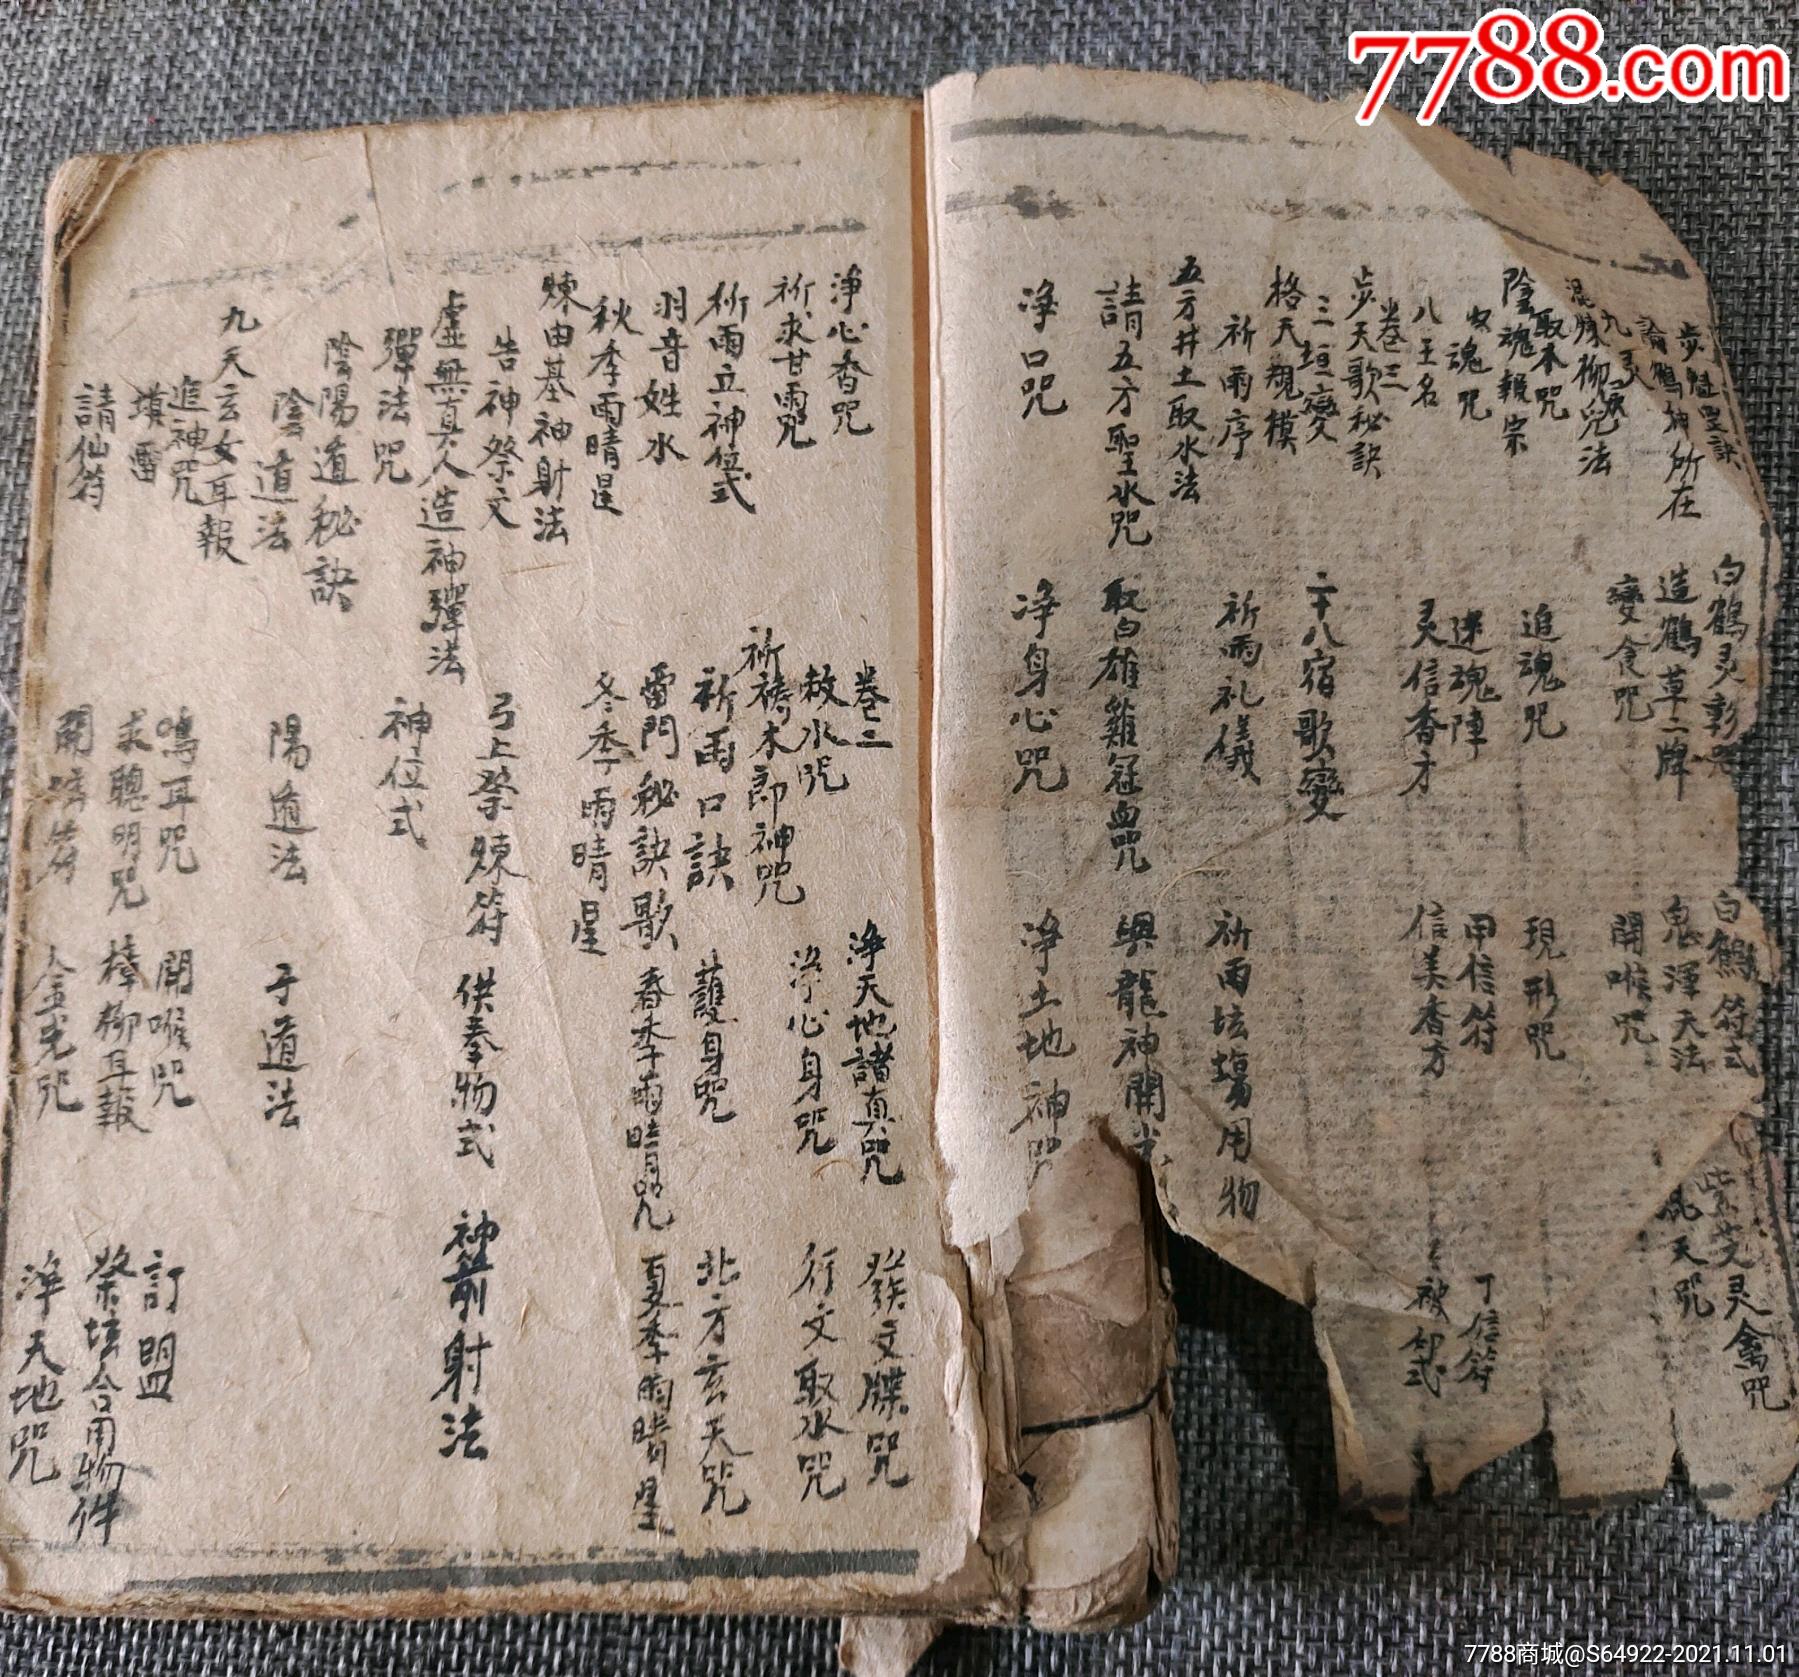 7788.com
步魁罡訣
白鶴灵彰咒
白鶴符式
紫芝灵禽咒
論鶴神所在
造鶴草二牌
鬼渾天法
混天咒
九灵咒
變食咒
開喉咒
混煉柳兒法
取本咒
追魂咒
現形咒
陰魂報宗
收魂咒
迷魂陣
甲信符
丁信符
八王名
灵信香方
信美香方
被卸式
卷三
步天歌秘訣
三垣變
二十八宿歌變
格天規模
祈雨序
祈雨礼儀
祈雨坛場用物
五方井土取水法
請五方聖水咒
取白雄雞冠血咒
與龍神開光
淨口咒
淨身心咒
淨土地神咒
淨心香咒
卷二
淨天地諸真咒
發文牒咒
祈求甘雨咒
敕水咒
淨心身咒
行文取水咒
祈雨立神位式
祈禱木郎神咒
羽音姓水
祈雨口訣
護身咒
北方玄天咒
秋季雨晴星
雷門秘訣歌
春季雨晴咒
夏季雨晴星
煉由基神射法
冬季雨晴星
告神祭文
弓上祭煉符
供奉物式
神箭射法
虛無真人造神彈法
彈法咒
神位式
陰陽道秘訣
陰道法
陽道法
于道法
九天玄女耳報
追神咒
鳴耳咒
開喉咒
訂盟
填雷
求聰明咒
樟柳耳報
祭坛合用物件
請仙符
開喉符
金光咒
淨天地咒
7788商城@S64922-2021.11.01